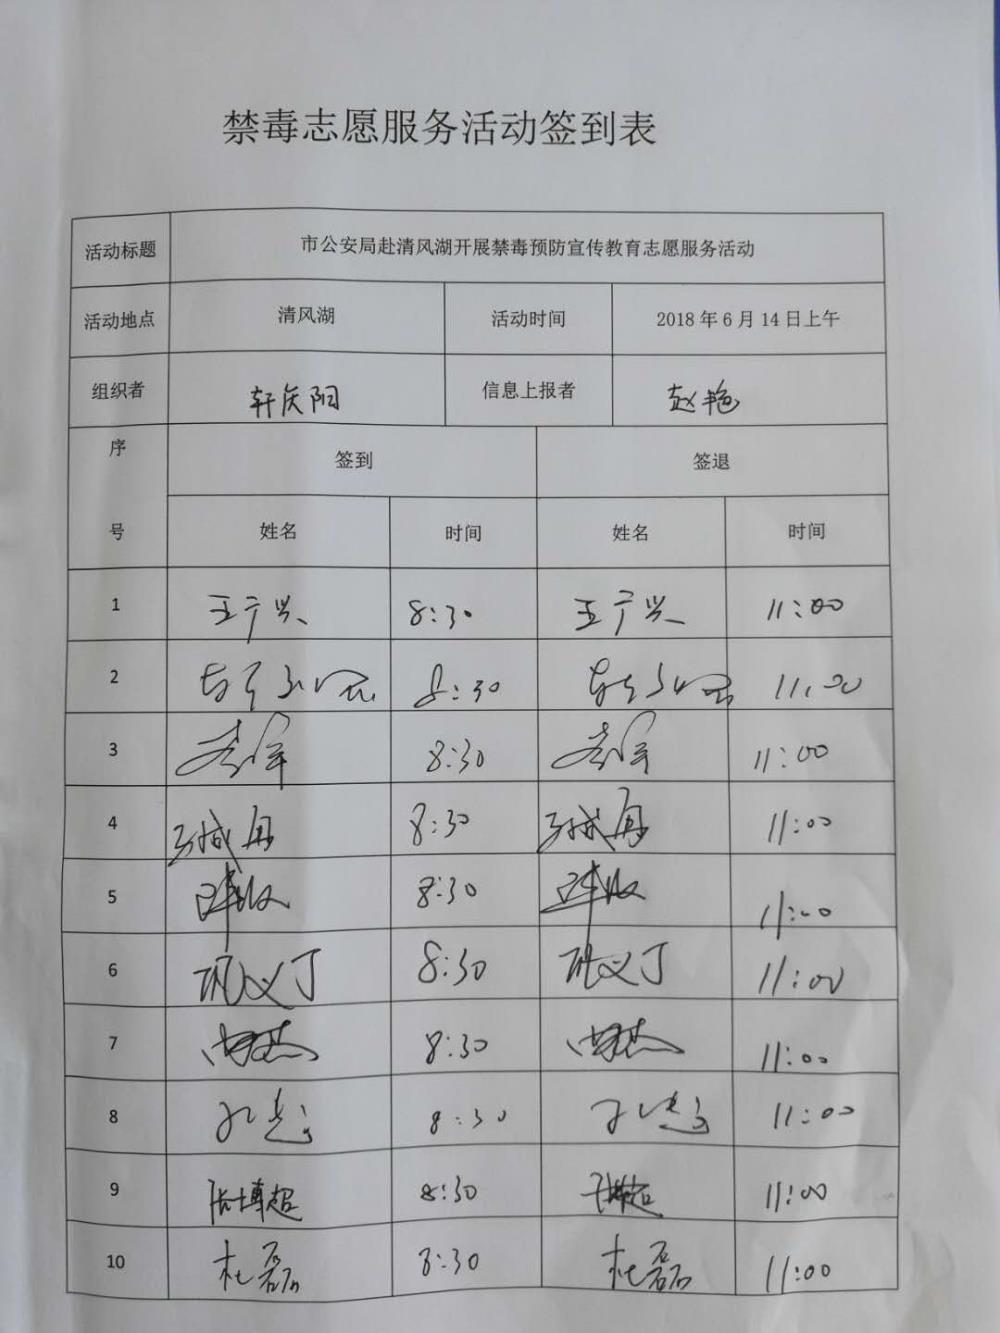 禁毒志愿服务活动签到表
活动标题 市公安局赴清风湖开展禁毒预防宣传教育志愿服务活动
活动地点 清风湖 活动时间 2018年6月14日上午
组织者 轩庆阳 信息上报者 赵艳
序 签到 签退
号 姓名 时间 姓名 时间
1 王广兴 8:30 王广兴 11:00
2 8:30 11:00
3 8:30 11:00
4 8:30 11:00
5 8:30 11:00
6 8:30 11:00
7 8:30 11:00
8 8:30 11:00
9 张博超 8:30 11:00
10 杜磊 8:30 杜磊 11:00